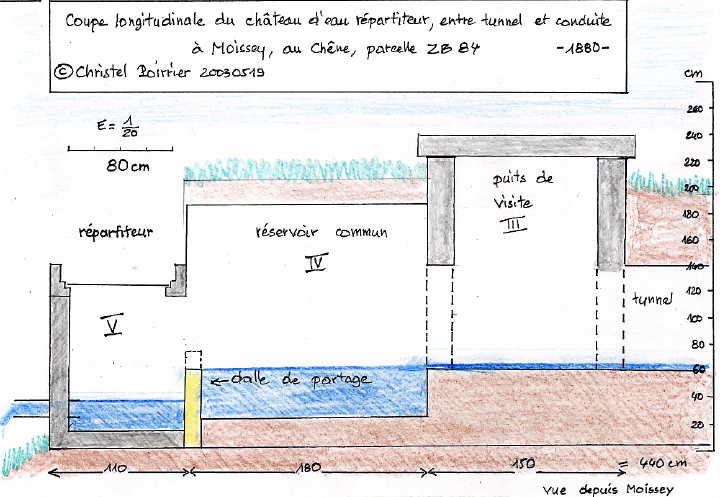 Coupe longitudinale du château d'eau répartiteur, entre tunnel et conduite
à Moissey, au Chêne, parcelle ZB 84 -1880-
© Christel Poirrier 20030519
cm
E = 1/20
80 cm
260
240
220
200
180
160
140
120
100
80
60
40
20
puits de
visite
III
répartiteur
réservoir commun
IV
tunnel
V
← dalle de partage
110
180
150
= 440 cm
vue depuis Moissey